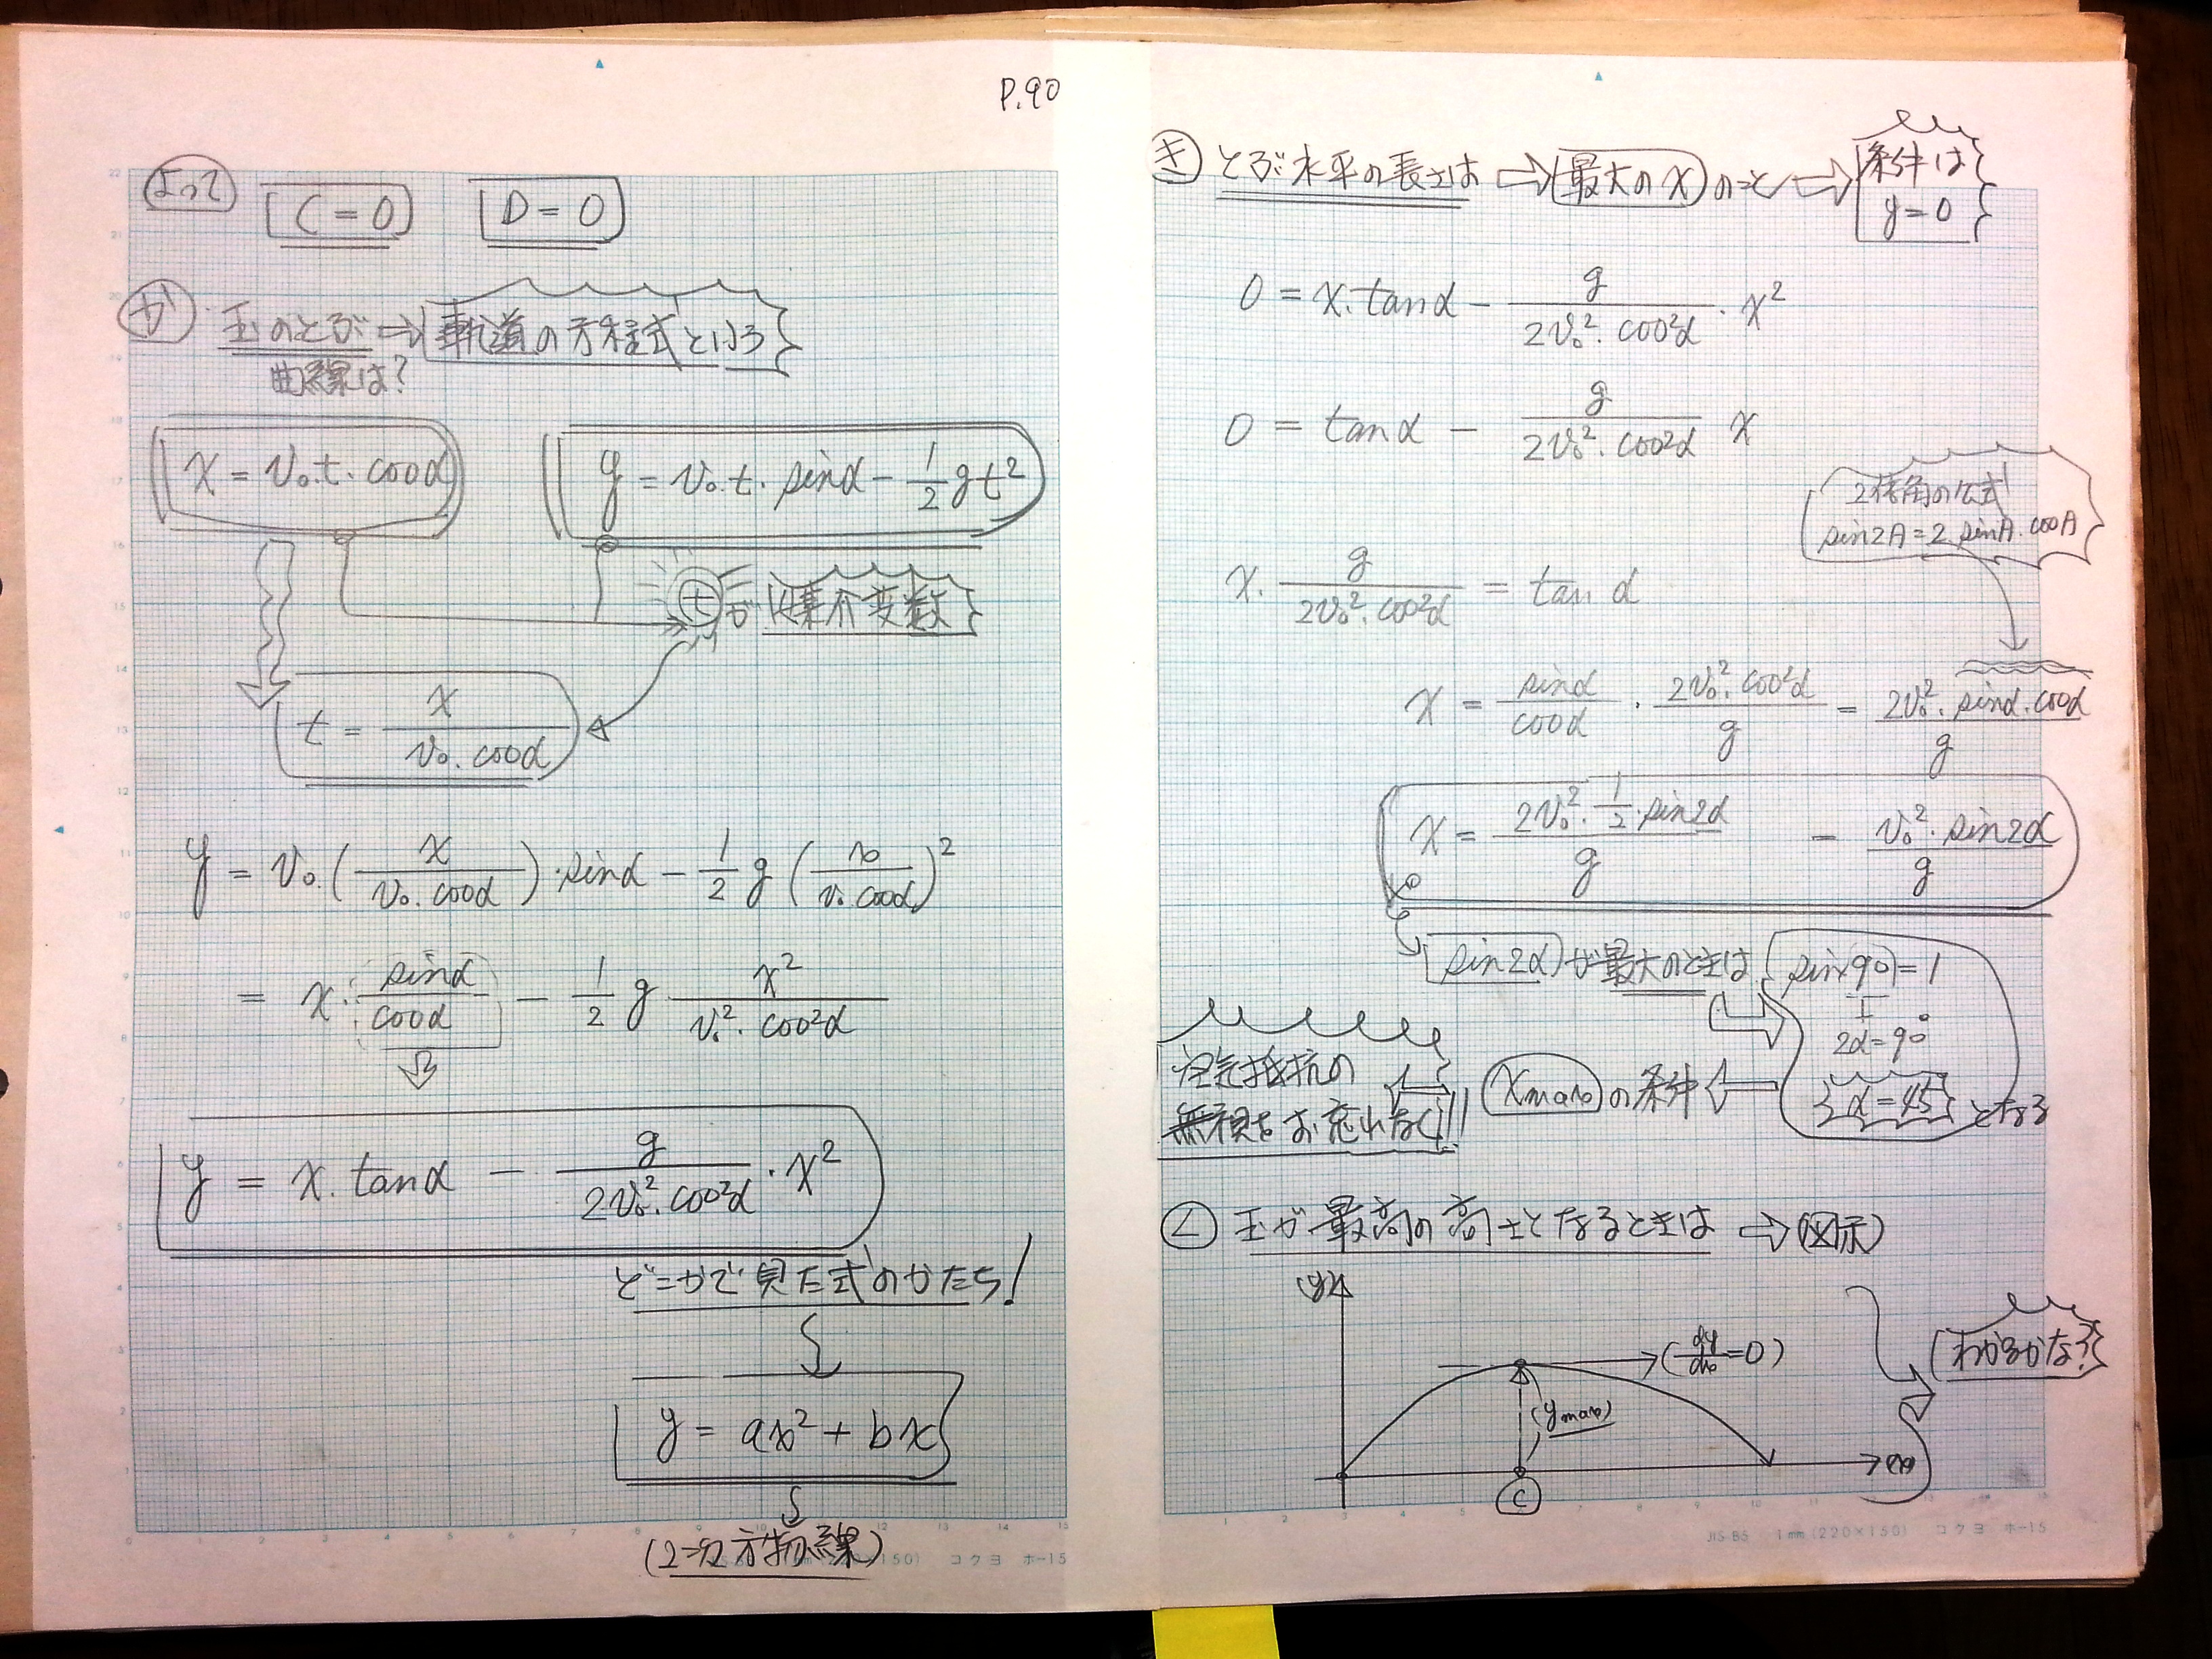 P.90
よって C = 0 D = 0
か 玉のとぶ ⇒ 軌道の方程式という
曲線は?
x = v₀.t.cosα y = v₀.t.sinα − 1/2 gt²
t が 媒介変数
t = x / v₀.cosα
y = v₀.(x / v₀.cosα).sinα − 1/2 g (x / v₀.cosα)²
= x. sinα/cosα − 1/2 g x² / v₀².cos²α
y = x.tanα − g / 2v₀².cos²α . x²
どこかで見た式のかたち!
y = ax² + bx
(2次方物線)
コクヨ ホ-15
き とぶ水平の長さは ⇒ 最大のx のこと ⇒ 条件は
y = 0
0 = x.tanα − g / 2v₀².cos²α . x²
0 = tanα − g / 2v₀².cos²α x
2倍角の公式
sin2A = 2 sinA.cosA
x. g / 2v₀².cos²α = tanα
x = sinα/cosα . 2v₀².cos²α / g = 2v₀².sinα.cosα / g
x = 2v₀².1/2.sin2α / g − v₀².sin2α / g
sin2α が最大のときは sin(90) = 1
2α = 90°
α = 45 となる
xmax の条件
空気抵抗の
無視をお忘れなく!!
く 玉が最高の高さとなるときは ⇒ (図示)
(y)
(dy/dx = 0)
(ymax)
わかるかな?
(x)
C
JIS-B5 1mm (220×150) コクヨ ホ-15